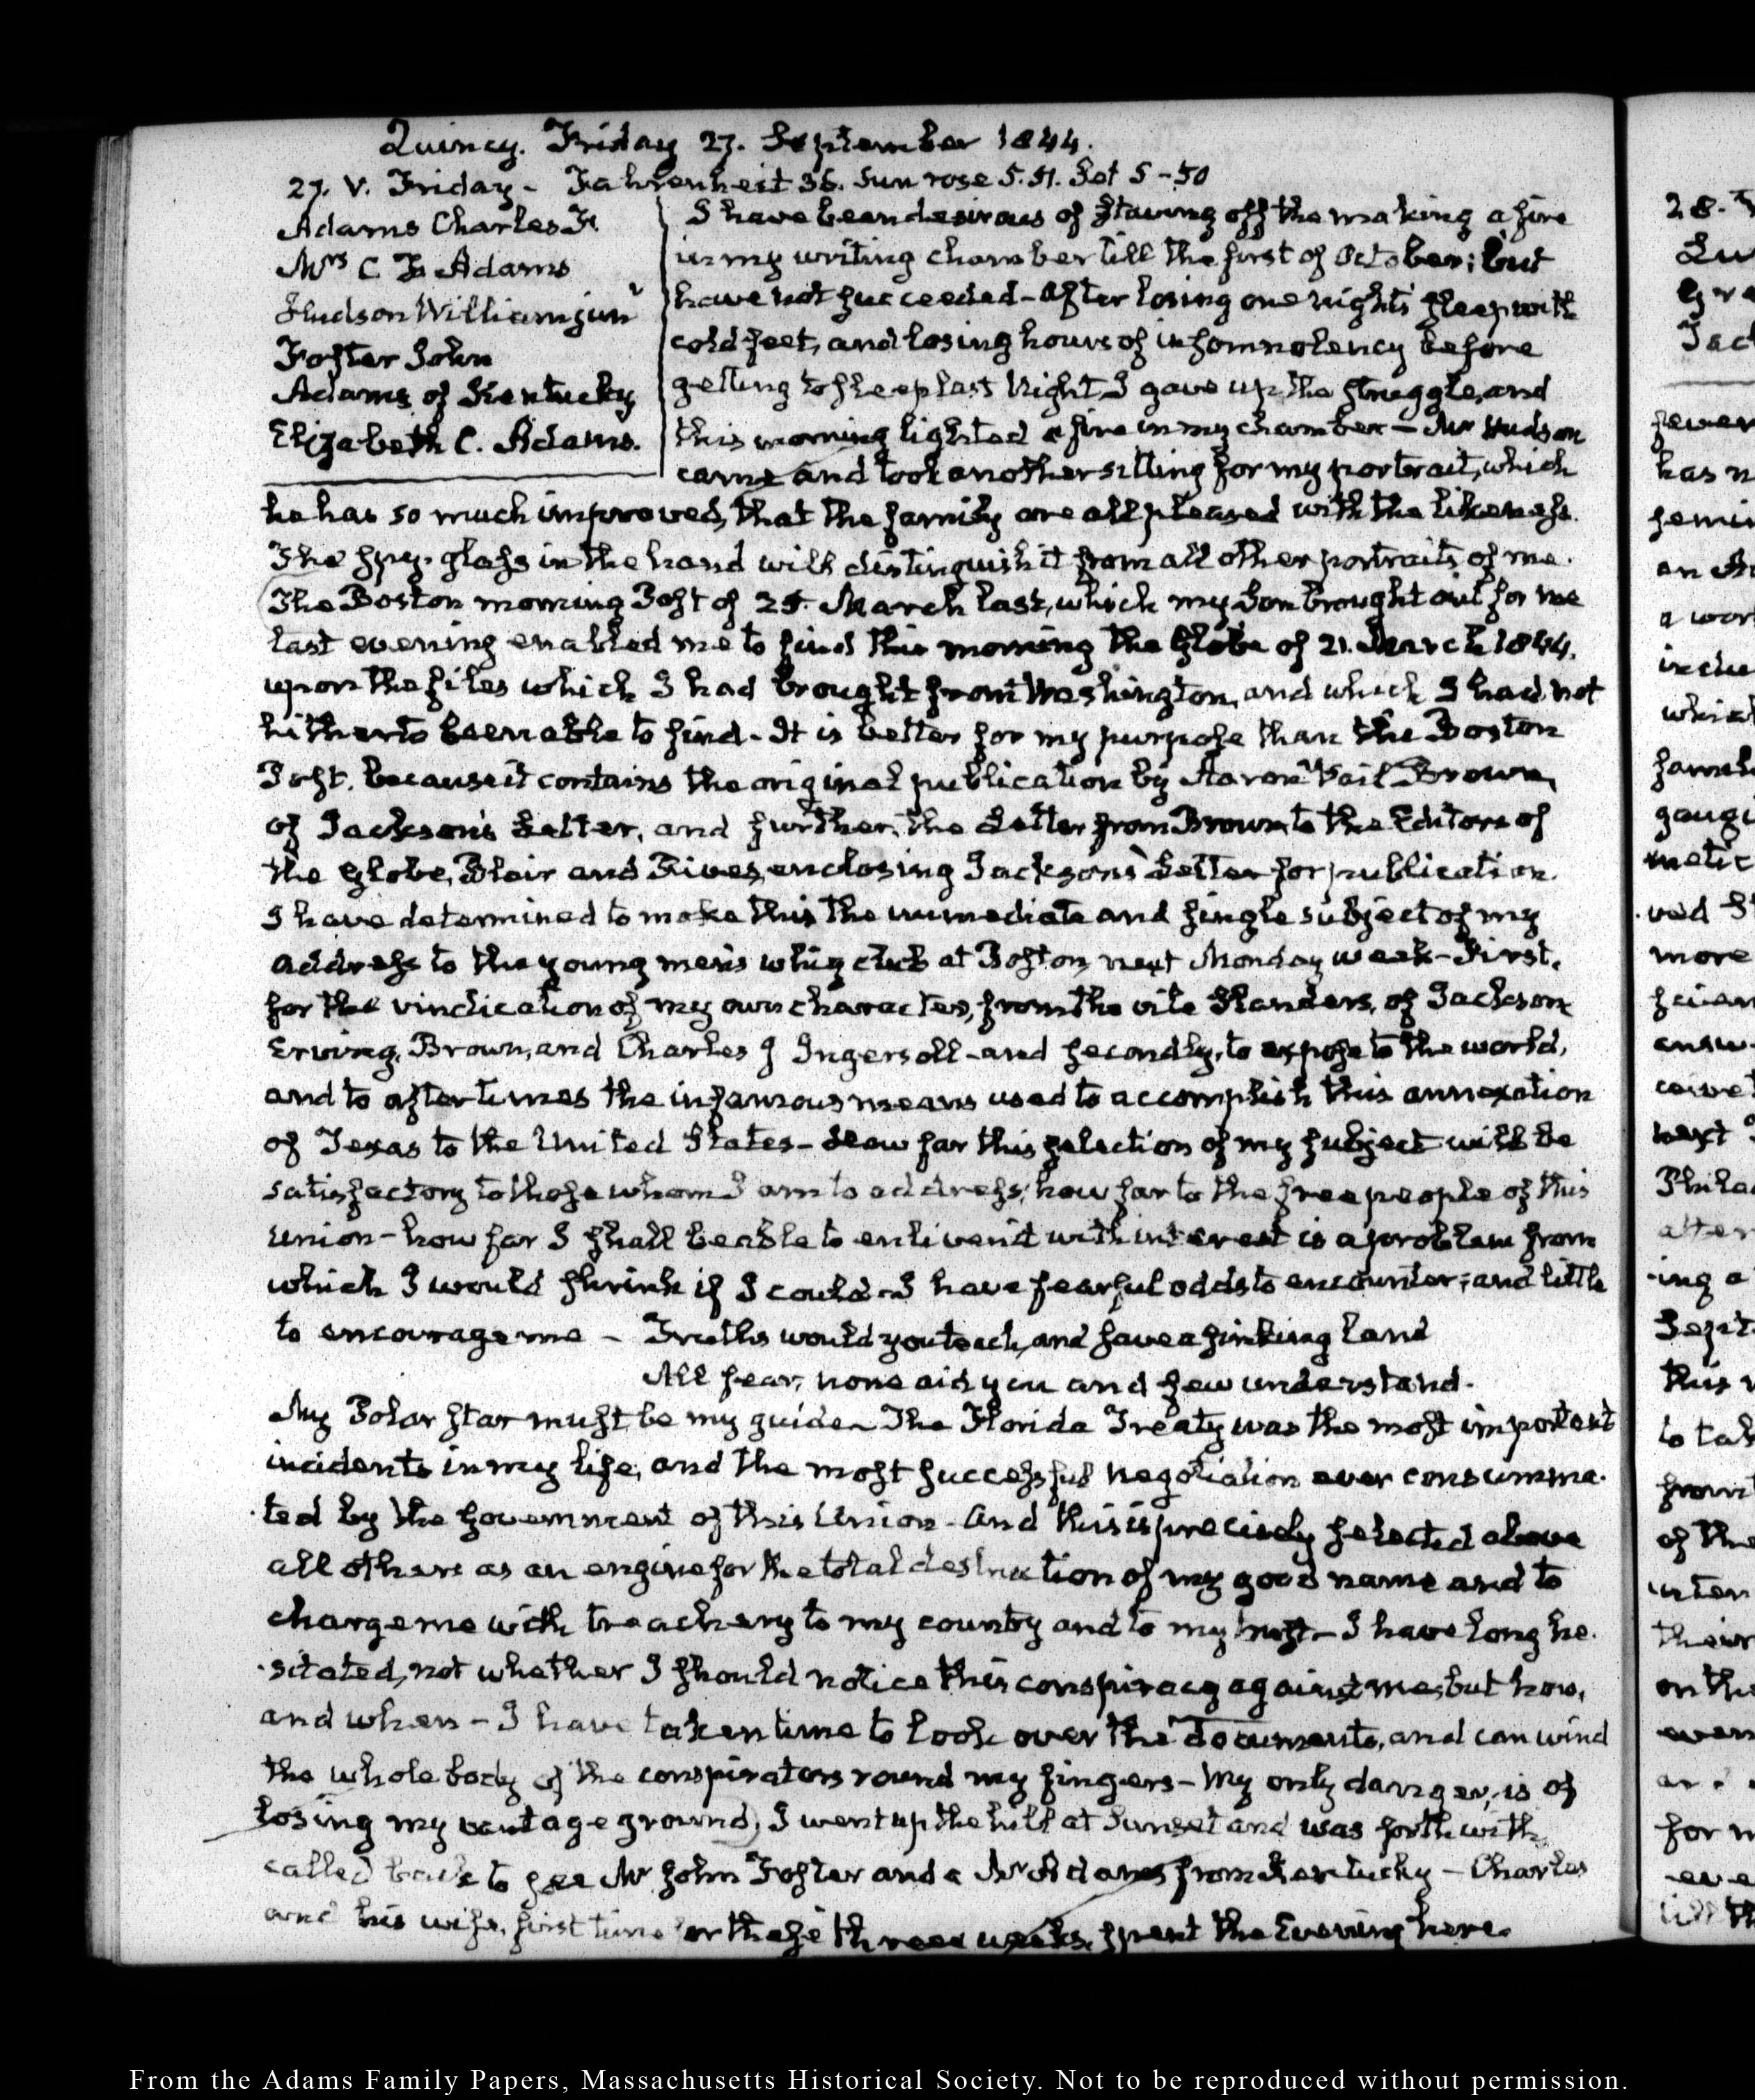 Quincy. Friday 27. September 1844.
27. V. Friday - Fahrenheit 36. Sun rose 5.51. Set 5-50
Adams Charles F.
Mrs C F. Adams
Hudson William junr
Foster John
Adams of Kentucky
Elizabeth C. Adams.
I have been desirous of staving off the making a fire
in my writing chamber till the first of October; but
have not succeeded - After losing one nights sleep with
cold feet, and losing hours of insomnolency before
getting to sleep last Night, I gave up the struggle, and
this morning lighted a fire in my chamber - Mr Hudson
came and took another sitting for my portrait, which
he has so much improved, that the family are all pleased with the likeness.
The spy-glass in the hand will distinguish it from all other portraits of me.
The Boston morning Post of 25. March last, which my Son brought out for me
last evening enabled me to find this morning the Globe of 21. March 1844.
upon the files which I had brought from Washington, and which I had not
hitherto been able to find - It is better for my purpose than the Boston
Post, because it contains the original publication by Aaron Vail Brown,
of Jackson's Letter, and further, the Letter from Brown to the Editors of
the Globe, Blair and Rives, enclosing Jackson's Letter for publication.
I have determined to make this the immediate and single subject of my
address to the young men's whig club at Boston, next Monday week - First,
for the vindication of my own character, from the vile Slanders, of Jackson
Erving, Brown, and Charles J Ingersoll - and secondly, to expose to the world,
and to after times the infamous means used to accomplish this annexation
of Texas to the United States - How far this selection of my subject will be
satisfactory to those whom I am to address; how far to the free people of this
Union - how far I shall be able to enliven it with interest is a problem from
which I would shrink if I could - I have fearful odds to encounter; and little
to encourage me - Truths would you teach, and save a sinking land
All fear, none aid you and few understand.
My Polar Star must be my guide - The Florida Treaty was the most important
incidents in my life, and the most successful Negotiation ever consumma-
ted by the Government of this Union - And this is precisely selected above
all others as an engine for the total destruction of my good name and to
charge me with treachery to my country and to my trust - I have long he-
sitated, not whether I should notice this conspiracy against me, but how,
and when - I have taken time to look over the Documents, and can wind
the whole body of the conspirators round my fingers - My only danger, is of
losing my vantage ground. I went up the hill at Sunset and was forthwith
called back to see Mr John Foster and a Mr Adams from Kentucky - Charles
and his wife, first time for these three weeks, spent the Evening here.
From the Adams Family Papers, Massachusetts Historical Society. Not to be reproduced without permission.